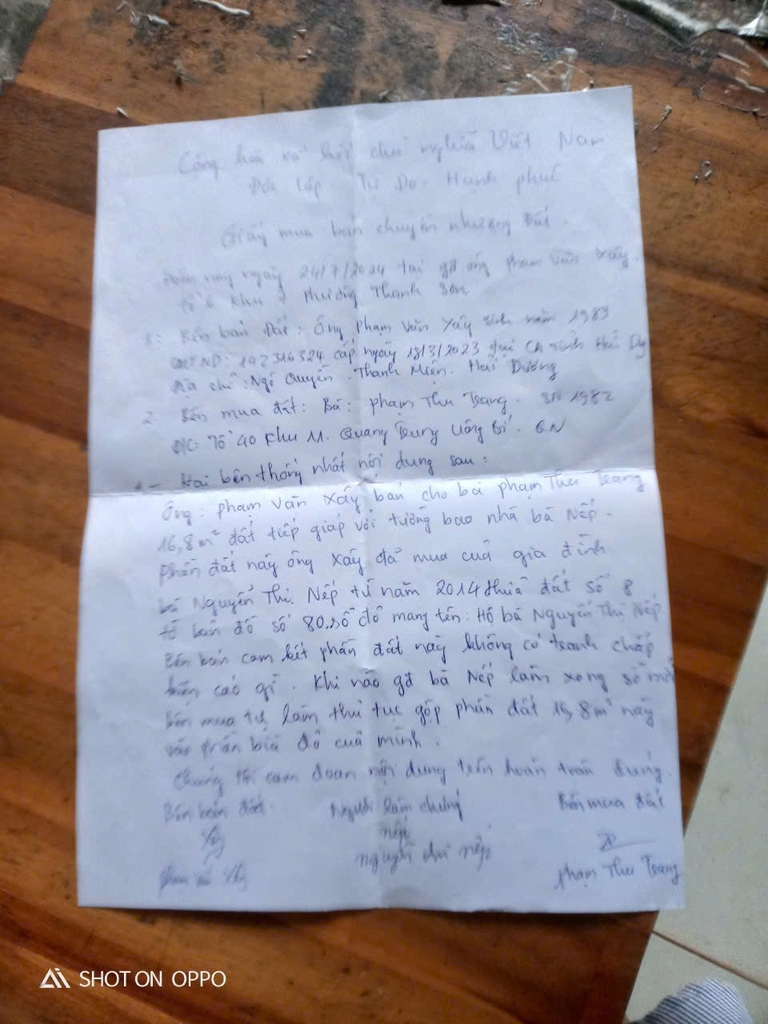 Cộng hòa xã hội chủ nghĩa Việt Nam
Độc lập Tự Do. Hạnh phúc
Giấy mua bán chuyển nhượng đất.
Hôm nay ngày 24/7/2024 tại gđ ông phạm văn xây.
tổ 6 khu phường Thanh Sơn
1: Bên bán đất: Ông phạm văn xây sinh năm 1983
CMTND: 142316324 cấp ngày 18/3/2023 tại CA tỉnh Hải Dg
Địa chỉ: Ngô Quyền Thanh Miện. Hải Dương
2 Bên mua đất: Bà: phạm Thu Trang. SN 1982
Đ/C: Tổ 40 khu 11. Quang Trung Uông Bí. QN
- Hai bên thống nhất nội dung sau:
Ông: phạm văn xây bán cho bà phạm Thu Trang
16,8m² đất tiếp giáp với tường bao nhà bà Nếp.
phần đất này ông xây đã mua của gia đình
bà Nguyễn Thị Nếp từ năm 2014 thửa đất số 8
tờ bản đồ số 80. sổ đỏ mang tên: Hộ bà Nguyễn Thị Nếp
Bên bán cam kết phần đất này không có tranh chấp
kiện cáo gì. Khi nào gđ bà Nếp làm xong sổ mới
bên mua tự làm thủ tục góp phần đất 16,8m² này
vào phần bìa đỏ của mình.
Chúng tôi cam đoan nội dung trên hoàn toàn đúng.
Bên bán đất Người làm chứng Bên mua đất
nếp
phạm văn xây nguyễn thị nếp phạm Thu Trang
SHOT ON OPPO